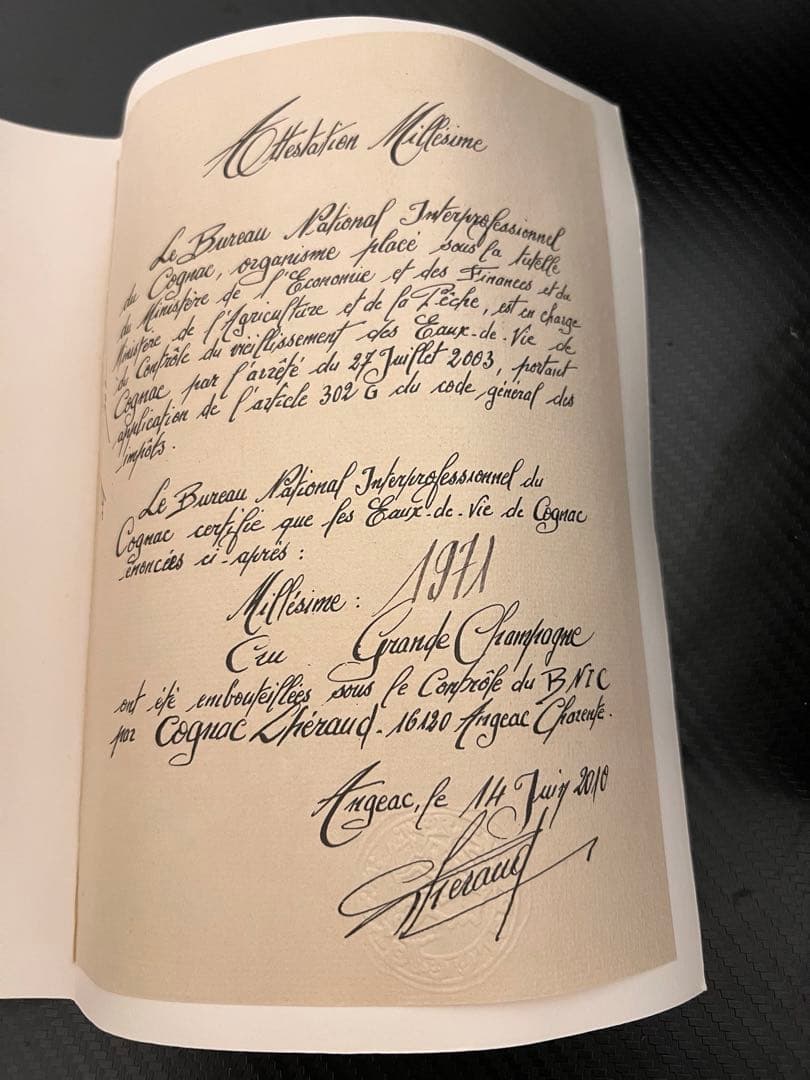 Attestation Millésime
Le Bureau National Interprofessionnel
du Cognac, organisme placé sous la tutelle
du Ministère de l'Économie et des Finances et du
Ministère de l'Agriculture et de la Pêche, est en charge
du Contrôle du vieillissement des Eaux-de-Vie de
Cognac par l'arrêté du 27 Juillet 2003, portant
application de l'article 302 G du code général des
impôts.
Le Bureau National Interprofessionnel du
Cognac certifie que les Eaux-de-Vie de Cognac
énoncées ci-après :
Millésime : 1971
Cru Grande Champagne
ont été embouteillées sous le Contrôle du BNIC
par Cognac Lhéraud. 16120 Angeac Charente.
Angeac, le 14 Juin 2010
Lheraud